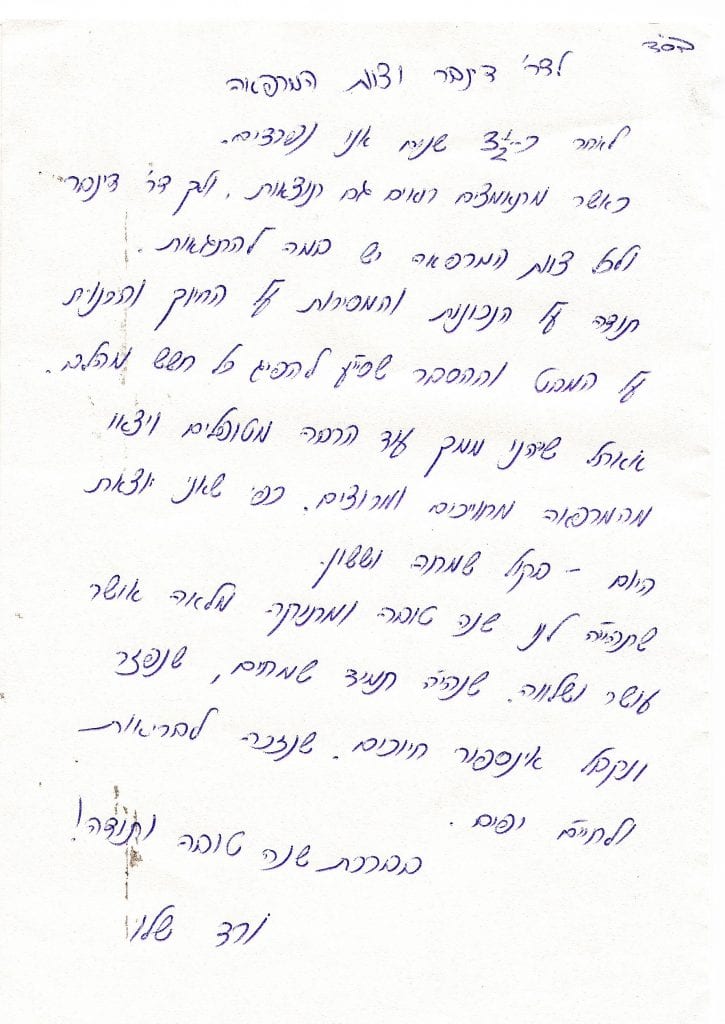 בס"ד
לדר' דינבר וצוות המרפאה
לאחר כ-3½ שנים אנו נפרדים.
כאשר מתאמצים רואים גם תוצאות, ולך דר' דינבר
ולכל צוות המרפאה יש במה להתגאות.
תודה על הנכונות והמסירות על החיוך והרכות
על המבט וההסבר שסייע להפיג כל חשש מהלב.
אאחל שיהנו ממך עוד הרבה מטופלים ויצאו
מהמרפאה מחוייכים ומרוצים. כפי שאני יוצאת
היום - בקול שמחה וששון.
שתהייה לנו שנה טובה ומתוקה מלאה אושר
עושר ושלווה. שנהיה תמיד שמחים, שנפזר
ונקבל אינספור חיוכים. שנזכה לבריאות
ולחיים יפים.
בברכת שנה טובה ותודה!
ורד שלו